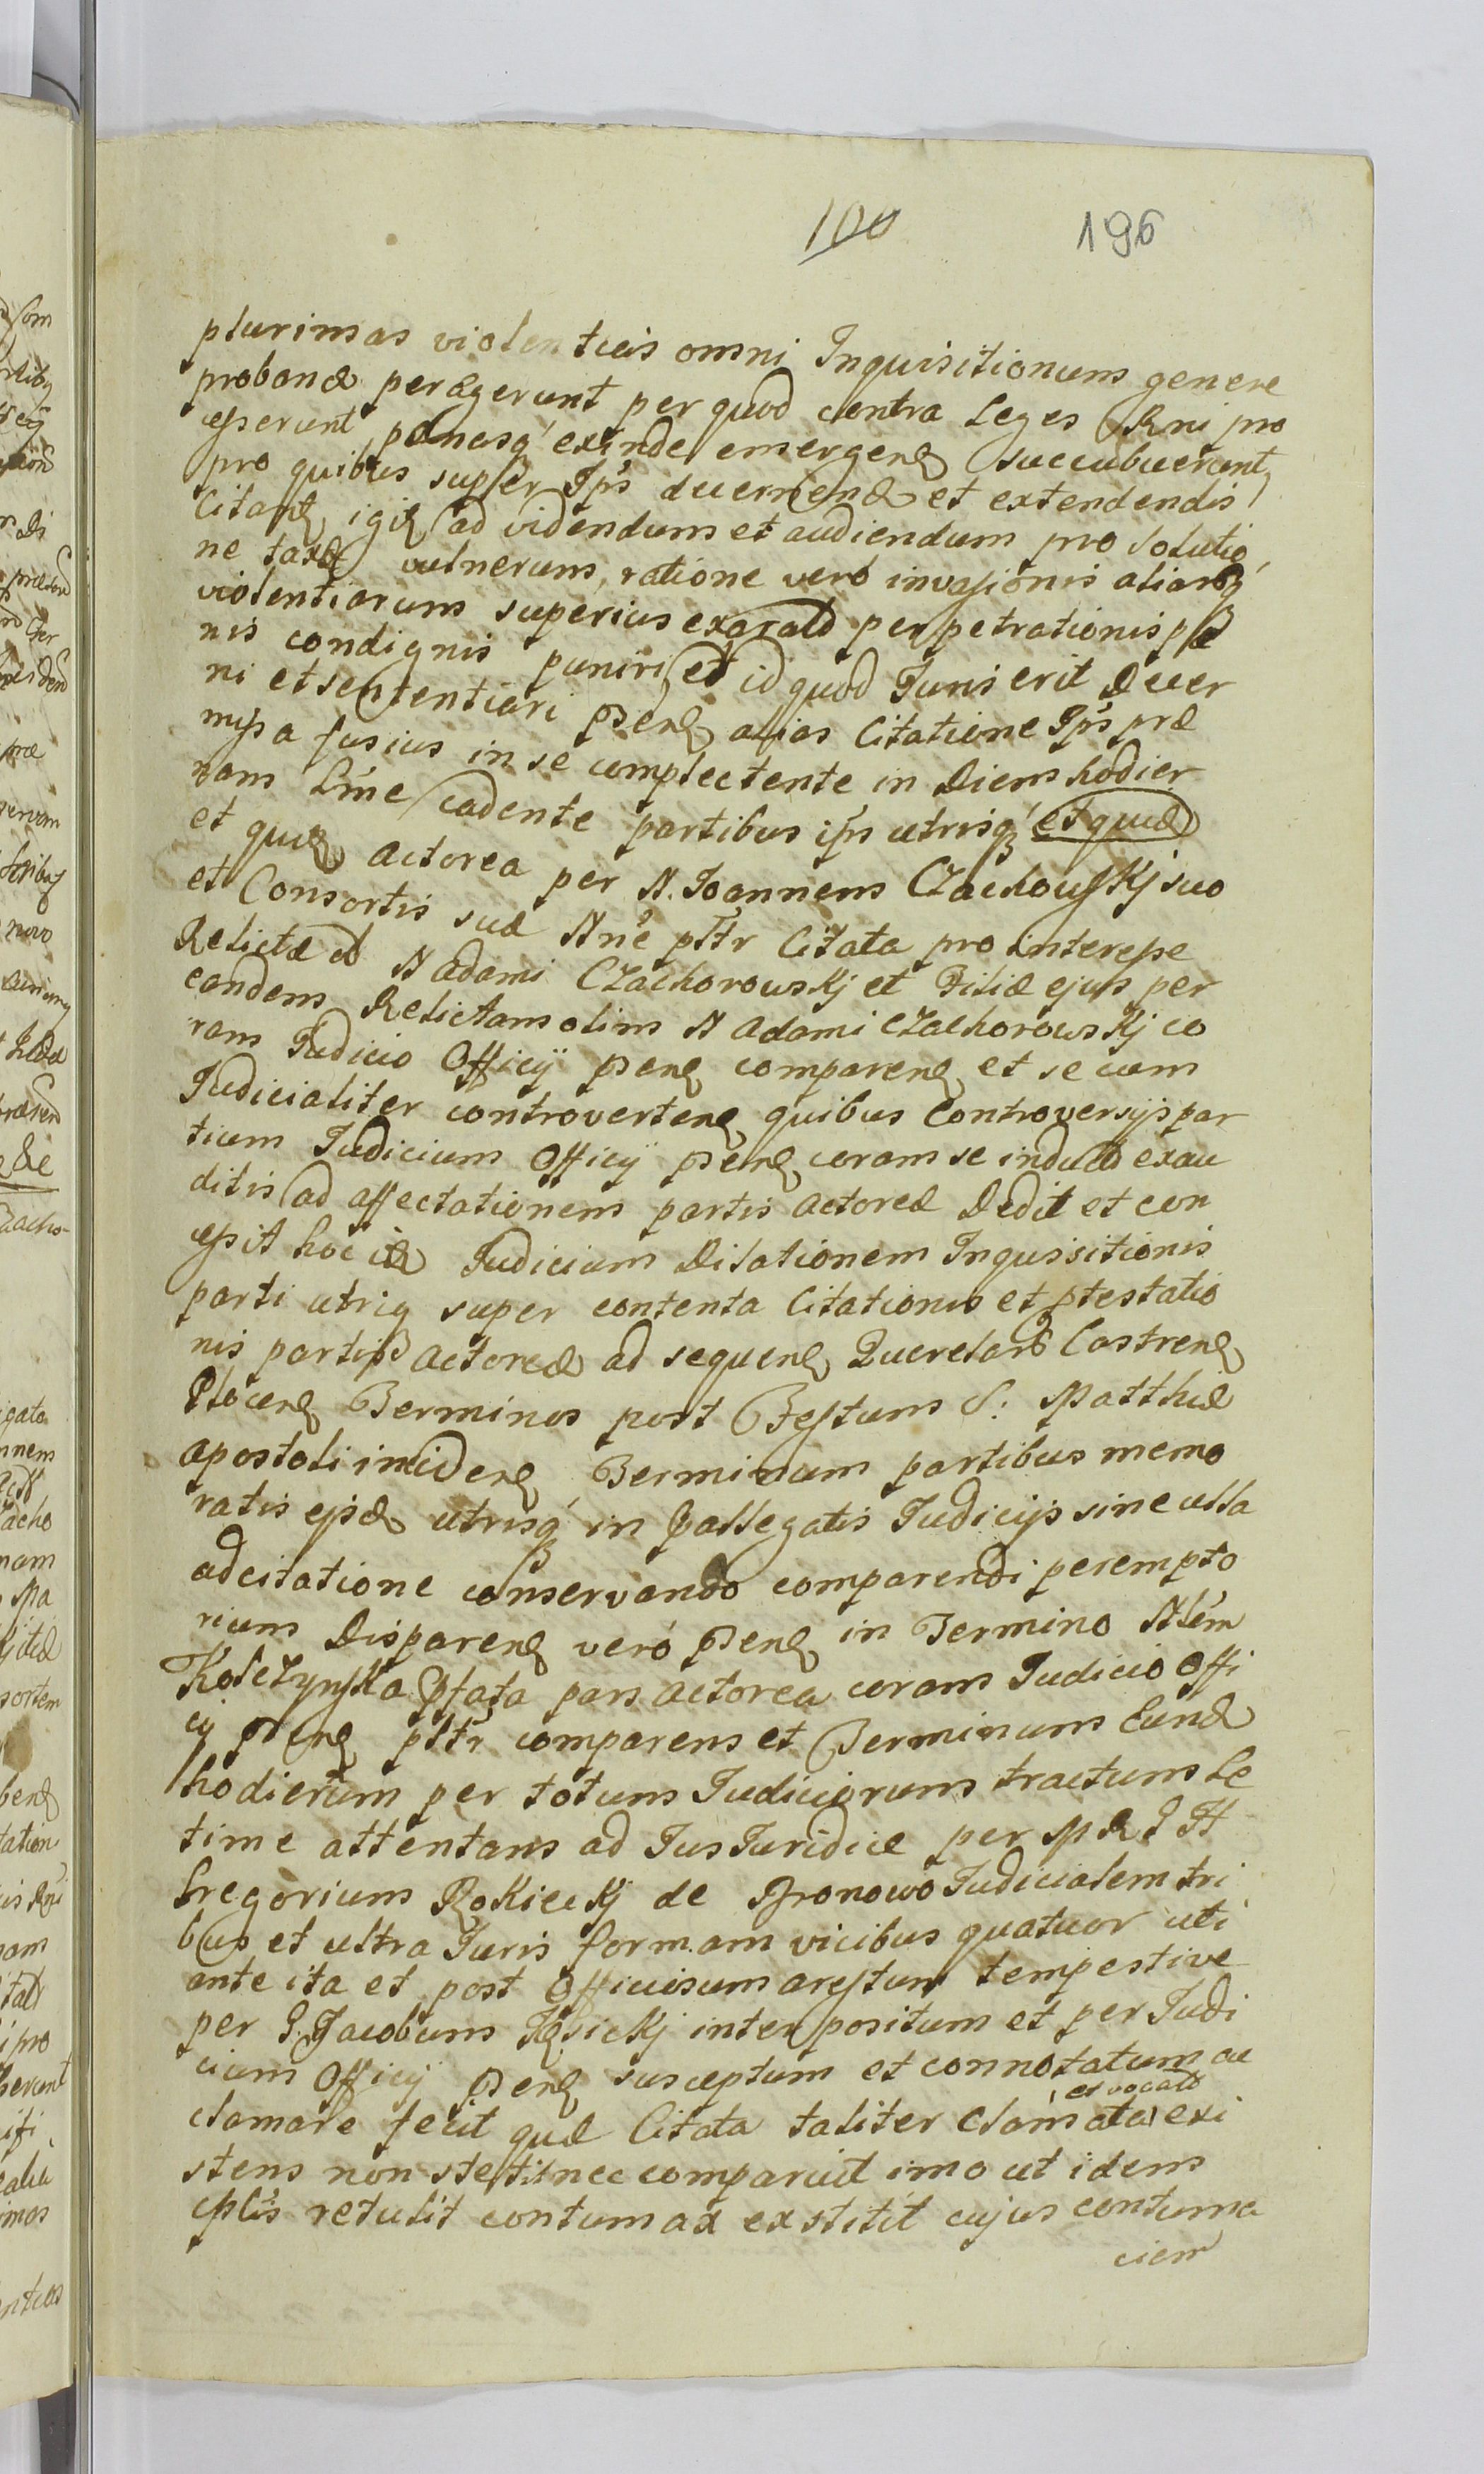 100 196
plurimas violentias omni Inquisitionum genere
proband peregerunt per quod contra Leges Rni pro
cesserunt, pænasq́ exinde emergen succubuerunt,
pro quibus super Ips decernend et extendendis
Citant igit ad videndum et audiendum pro solutio
ne taxæ vulnerum, ratione veró invasionis aliarq́
violentiarum superius exarat perpetrationis pæ
nis condignis puniri, et id quod Juris erit Decer
ni et sententiari Psen alias Citatione Ips præ
missa fusius in se complectente in Diem hodier
nam Lme cadente partibus ips utrisq́ et quid
et quid Actorea per N. Joannem Czachowskj suo
et Consortis suæ Nne pltr Citata pro interesse
Relictæ N Adami Czachorowskj et Filiæ ejus per
eandem Relictam olim N Adami Czachorowskj co
ram Judicio Officij Psen comparen et se cum
Judicialiter controverten quibus Controversijs par
tium Judicium Officij Psen coram se induct exau
ditis ad affectationem partis Actoreæ Dedit et con
cessit hoc id Judicium Dilationem Inquisitionis
parti utriq super contenta Citationis et ptestatio
nis partis Actoreæ ad sequen Querelar Castren
Plocen Terminos post Festum S: Matthiæ
Apostoli inciden Terminum partibus memo
ratis ejsd utrisq́ in pallegatis Judicijs sine ulla
adcitatione conservando comparendi perempto
rium Disparen veró Psen in Termino Nlem
Kolczynska Pfata pars Actorea coram Judicio Offi
cij Psen pltr comparens et Terminum Eund
hodiernum per totum Judiciorum tractum Le
time attentans ad Jus Juridice per M R G H
Gregorium Rokickj de Bronowo Judicialem tri
bus et ultra Juris formam vicibus quatuor uti
ante ita et post Officiosum arestum tempestive
per G. Jacobum Kęsickj interpositum et per Judi
cium Officij Psen susceptum et connotatum ac
et vocata
clamare fecit quæ Citata taliter clamata exi
stens non stetit nec comparuit imo ut idem
isplis retulit contumax exstitit cujus contuma
ciem